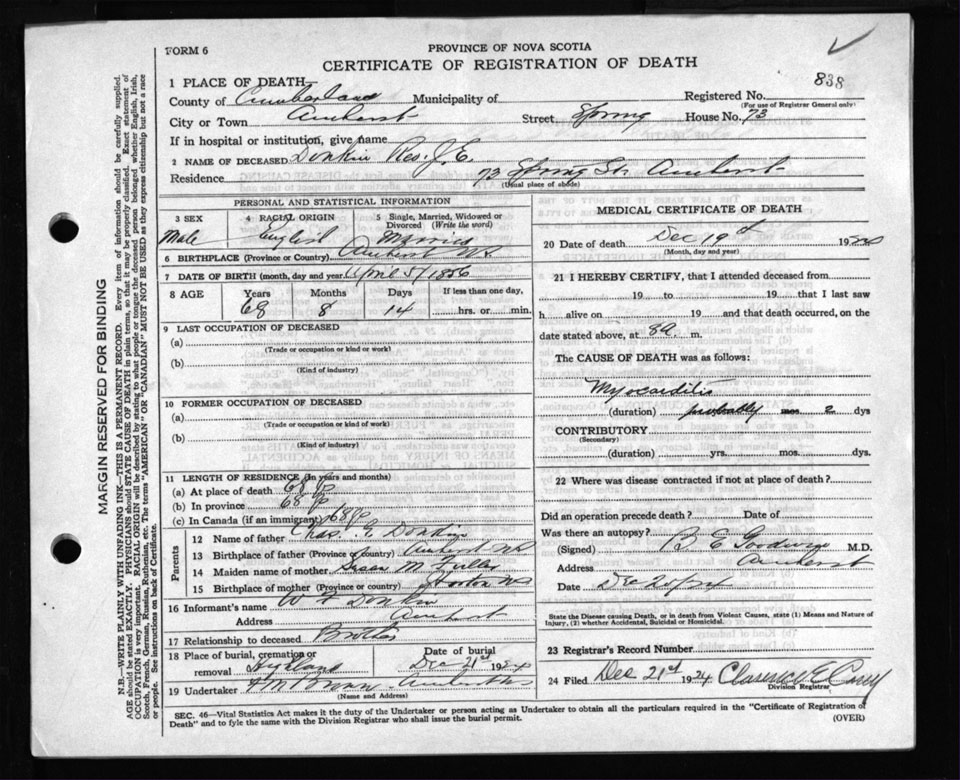 FORM 6
PROVINCE OF NOVA SCOTIA
CERTIFICATE OF REGISTRATION OF DEATH
838
1 PLACE OF DEATH—
Registered No.
(For use of Registrar General only)
County of Cumberland Municipality of
City or Town Amherst Street, Spring House No. 73
If in hospital or institution, give name
2 NAME OF DECEASED Donkin J. E.
Residence 73 Spring St. Amherst
(Usual place of abode)
PERSONAL AND STATISTICAL INFORMATION
3 SEX 4 RACIAL ORIGIN 5 Single, Married, Widowed or Divorced (Write the word)
Male English Married
6 BIRTHPLACE (Province or Country) Amherst NS
7 DATE OF BIRTH (month, day and year) April 5/1856
8 AGE Years Months Days If less than one day,
68 8 14 hrs. or min.
9 LAST OCCUPATION OF DECEASED
(a)
(Trade or occupation or kind or work)
(b)
(Kind of industry)
10 FORMER OCCUPATION OF DECEASED
(a)
(Trade or occupation or kind of work)
(b)
(Kind of industry)
11 LENGTH OF RESIDENCE (In years and months)
(a) At place of death 68
(b) In province 68
(c) In Canada (if an immigrant) 68
Parents
12 Name of father Donkin
13 Birthplace of father (Province or country) Amherst NS
14 Maiden name of mother M.
15 Birthplace of mother (Province or country) Horton NS
16 Informant's name W Donkin
Address Amherst
17 Relationship to deceased Brother
18 Place of burial, cremation or removal Highland
Date of burial Dec 21st 1924
19 Undertaker Amherst NS
(Name and Address)
MEDICAL CERTIFICATE OF DEATH
20 Date of death Dec 19th 1924
(Month, day and year)
21 I HEREBY CERTIFY, that I attended deceased from
19 to 19 that I last saw
h alive on 19 and that death occurred, on
date stated above, at 8a m.
The CAUSE OF DEATH was as follows:
Myocarditis
(duration) probably mos 2 dys
CONTRIBUTORY
(Secondary)
(duration) yrs. mos. dys.
22 Where was disease contracted if not at place of death?
Did an operation precede death? Date of
Was there an autopsy?
(Signed) M.D.
Address Amherst
Date Dec 20/24
State the Disease causing Death, or in death from Violent Causes, state (1) Means and Nature of Injury, (2) whether Accidental, Suicidal or Homicidal.
23 Registrar's Record Number
24 Filed Dec 21st 1924 Clarence E
Division Registrar
SEC. 46—Vital Statistics Act makes it the duty of the Undertaker or person acting as Undertaker to obtain all the particulars required in the "Certificate of Registration of
Death" and to fyle the same with the Division Registrar who shall issue the burial permit.
(OVER)
MARGIN RESERVED FOR BINDING
N.B.—WRITE PLAINLY WITH UNFADING INK—THIS IS A PERMANENT RECORD. Every item of information should be carefully supplied.
AGE should be stated EXACTLY. PHYSICIANS should STATE CAUSE OF DEATH in plain terms, so that it may be properly classified. Exact statement of
OCCUPATION is very important. RACIAL ORIGIN will be described by stating to what people or tongue the deceased person belonged whether English, Irish,
Scotch, French, German, Russian, Ruthenian, etc. The terms "AMERICAN" OR "CANADIAN" MUST NOT BE USED as they express citizenship but not a race
or people. See instructions on back of Certificate.